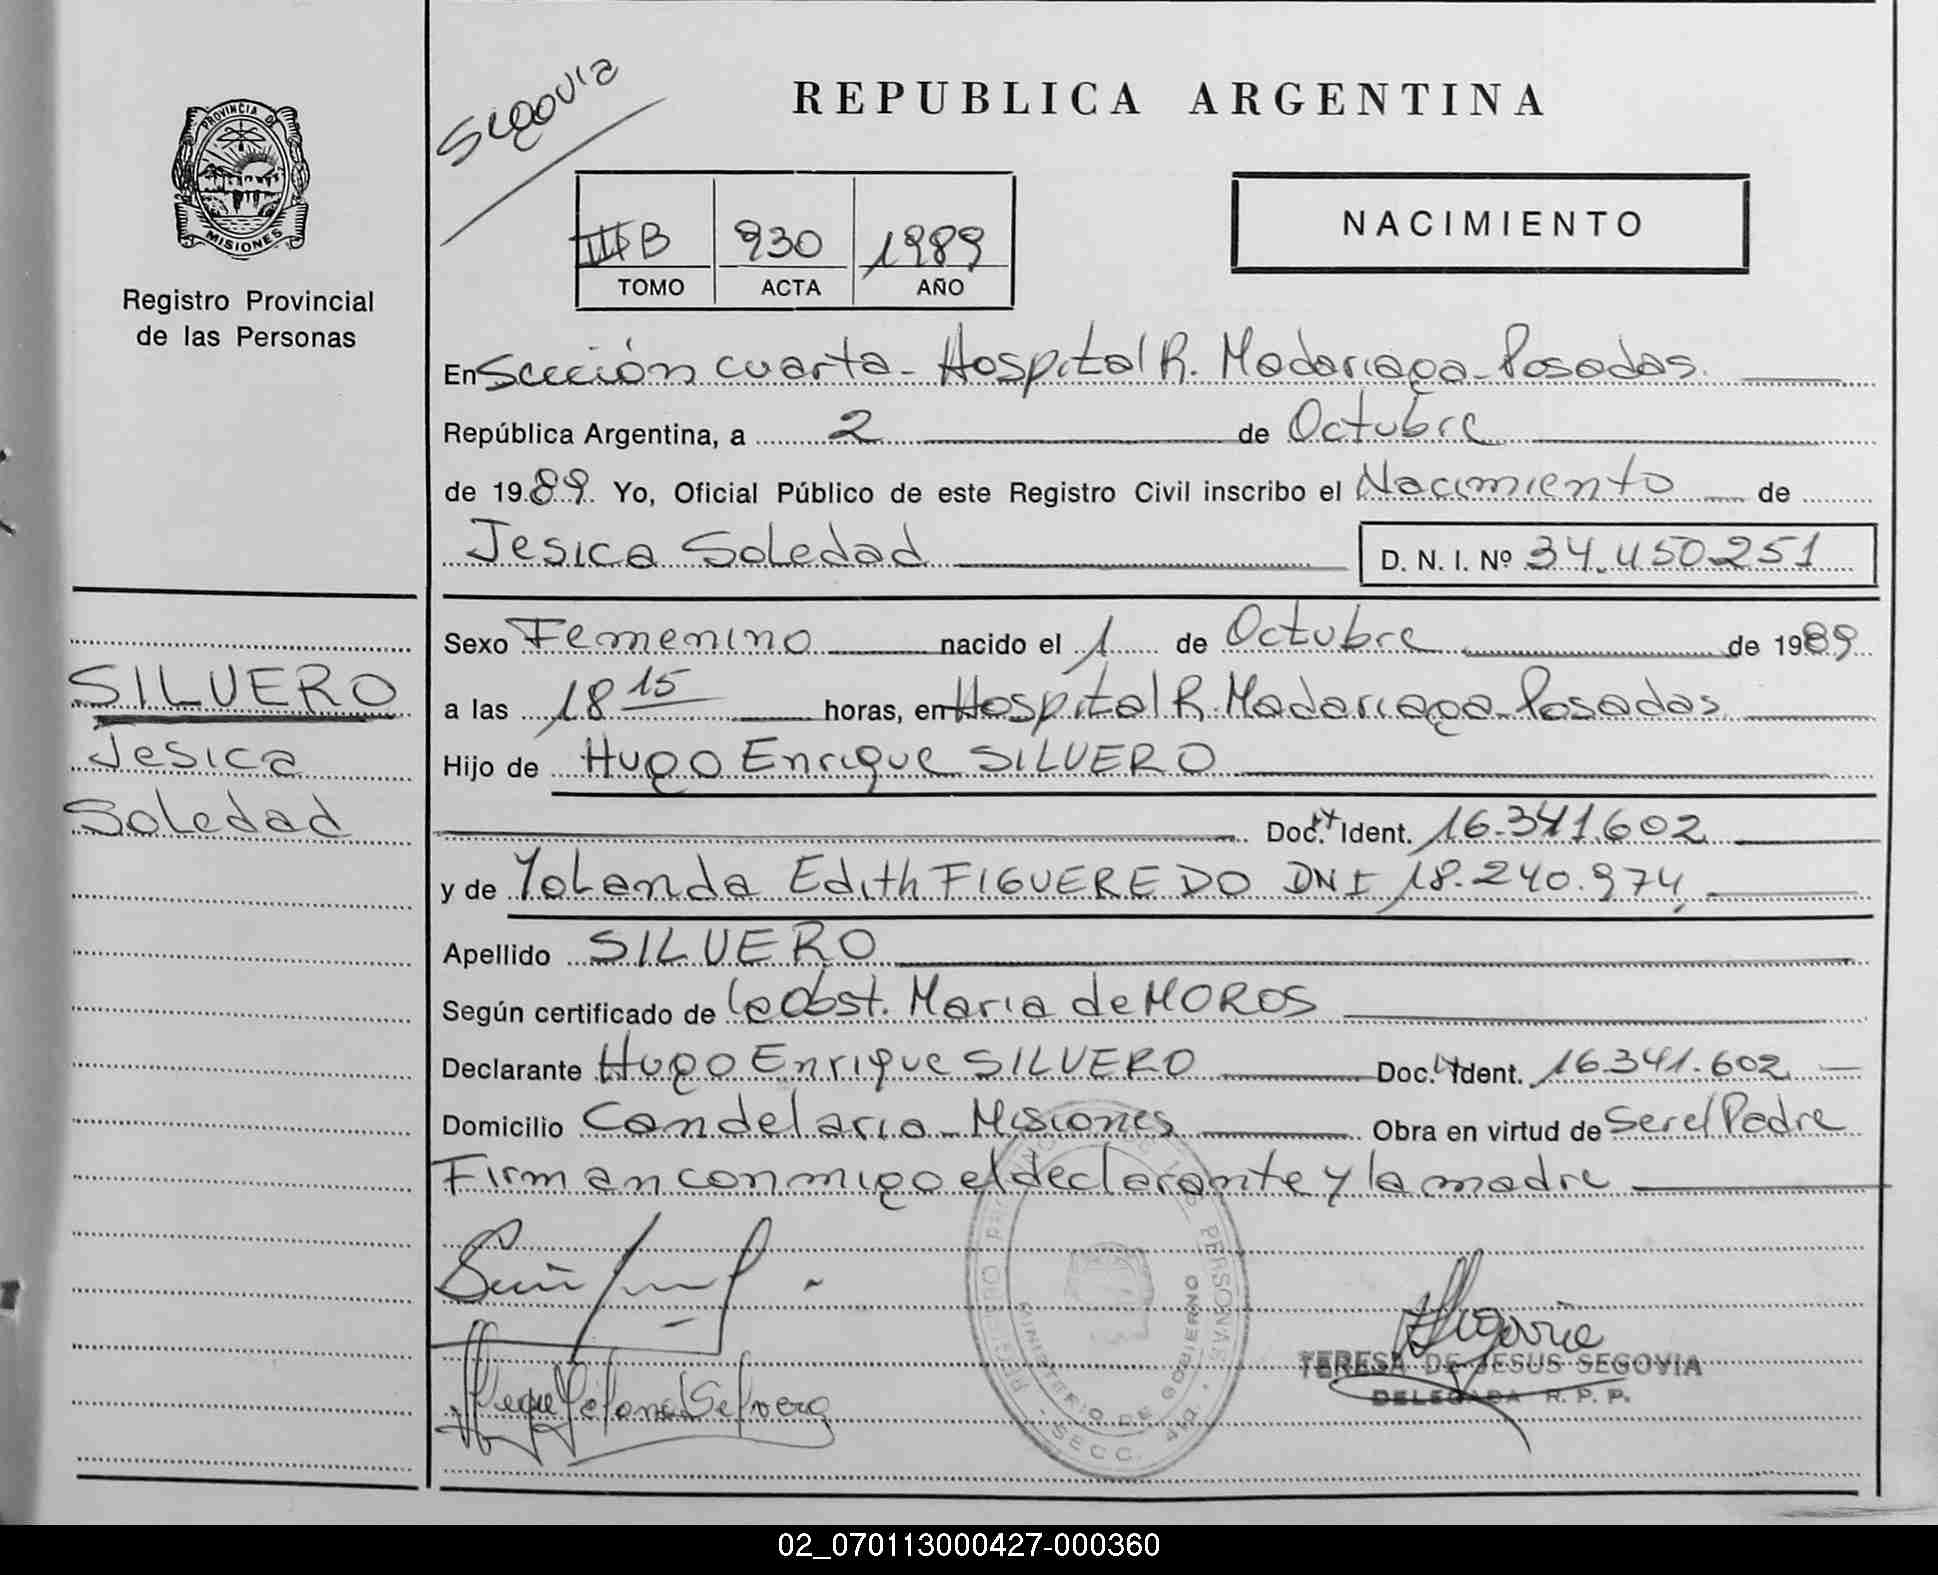 Segovia
REPUBLICA ARGENTINA
PROVINCIA DE
MISIONES
Registro Provincial
de las Personas
B 930 1989
TOMO ACTA AÑO
NACIMIENTO
En Sección cuarta - Hospital R. Madariaga - Posadas.
República Argentina, a 2 de Octubre
de 1989. Yo, Oficial Público de este Registro Civil inscribo el Nacimiento de
Jesica Soledad D. N. I. Nº 34.450.251
Sexo Femenino nacido el 1 de Octubre de 1989
a las 18 15 horas, en Hospital R. Madariaga - Posadas
Hijo de Hugo Enrique SILVERO
Doc. Ident. 16.341.602
y de Yolanda Edith FIGUEREDO DNI 18.240.974
Apellido SILVERO
Según certificado de la Obst. Maria de MOROS
Declarante Hugo Enrique SILVERO Doc. Ident. 16.341.602
Domicilio Candelaria - Misiones Obra en virtud de Ser el Padre
Firman conmigo el declarante y la madre
SILVERO
Jesica
Soledad
MINISTERIO DE GOBIERNO
SECC. 4ta.
TERESA DE JESUS SEGOVIA
DELEGADA R. P. P.
02_070113000427-000360